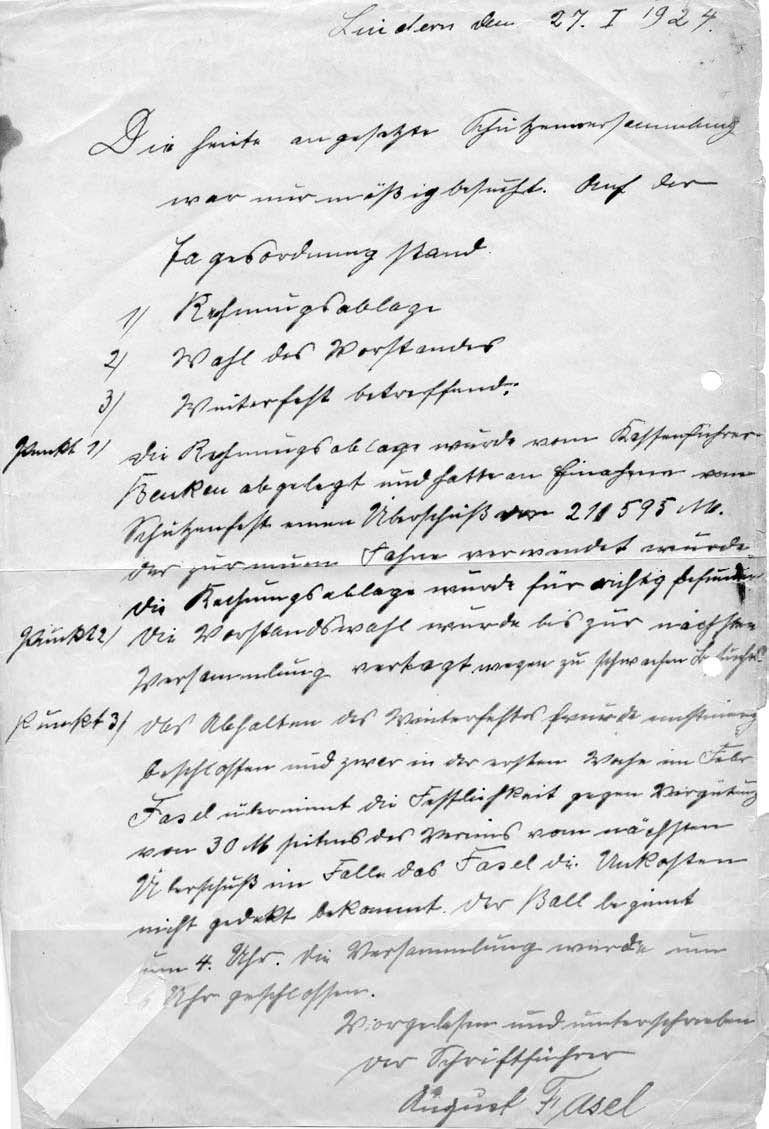 Lindern den 27. I 1924.
Die heute angesetzte Schützenversammlung
war nur mäßig besucht. Auf der
Tagesordnung stand
1) Rechnungsablage
2) Wahl des Vorstandes
3) Winterfest betreffend.
Punkt 1) Die Rechnungsablage wurde vom Kassenführer
Benken abgelegt und hatte an Einahme vom
Schützenfest einen Überschuß von 211 595 M.
der zur neuen Fahne verwendet wurde
Die Rechnungsablage wurde für richtig befunden
Punkt 2) Die Vorstandswahl wurde bis zur nächsten
Versammlung vertagt wegen zu schwachen Besuches
Punkt 3) Das Abhalten des Winterfestes wurde einstimmig
beschlossen und zwar in der ersten Woche im Febr
Fasel übernimt die Festlichkeit gegen Vergütung
von 30 M seitens des Vereins vom nächsten
Überschuß im Falle das Fasel die Unkosten
nicht gedekt bekommt. Der Ball beginnt
um 4. Uhr. Die Versammlung wurde um
Uhr geschlossen.
Vorgelesen und unterschrieben
Der Schriftführer
August Fasel